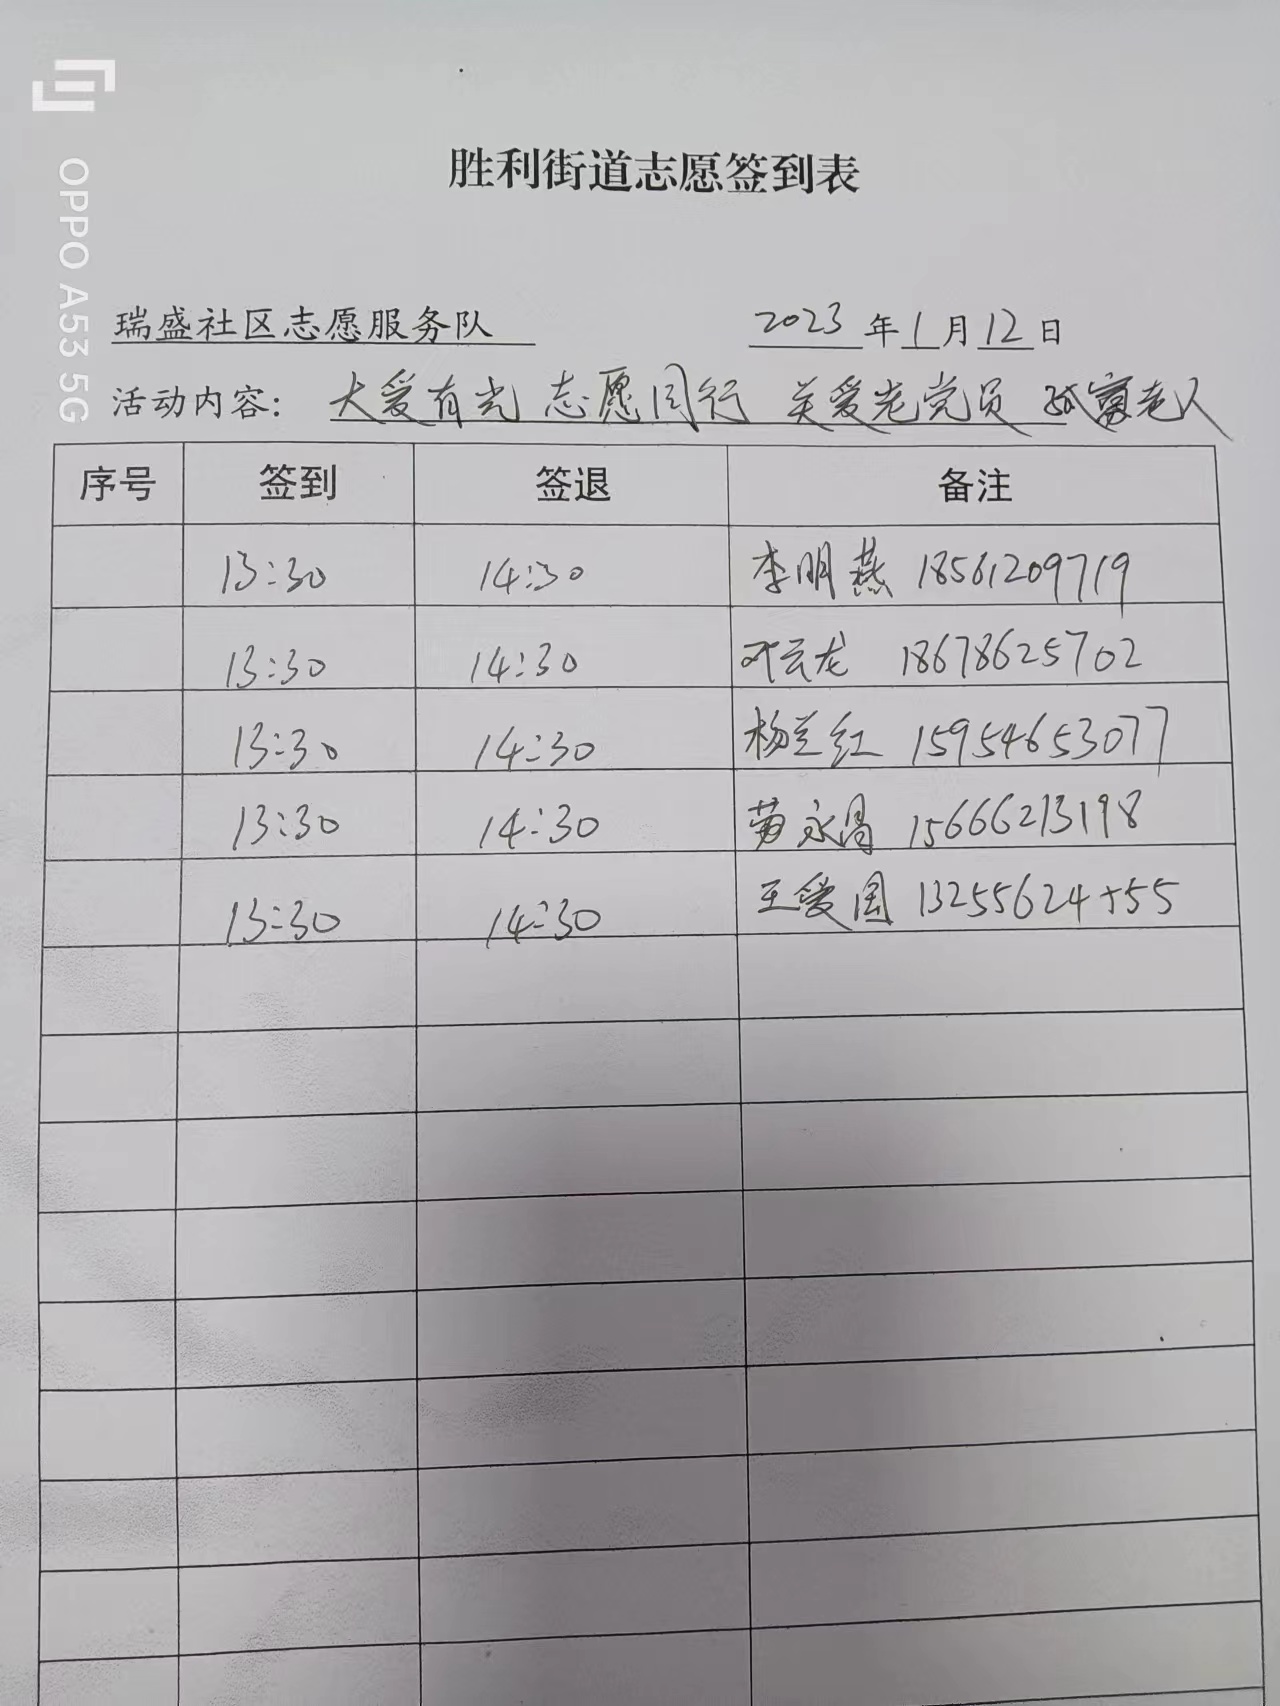 OPPO A53 5G
胜利街道志愿签到表
瑞盛社区志愿服务队 2023年1月12日
活动内容: 大爱有光 志愿同行 关爱老党员 孤寡老人
序号 签到 签退 备注
13:30 14:30 李明燕 18561209719
13:30 14:30 云龙 18678625702
13:30 14:30 杨兰红 15954653077
13:30 14:30 黄永昌 15666213198
13:30 14:30 王爱国